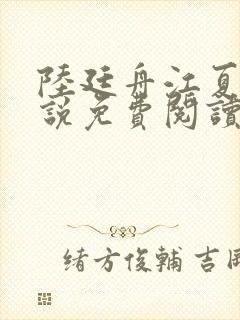 陸廷舟江夏
說免費閱讀
緒方俊輔 吉岡